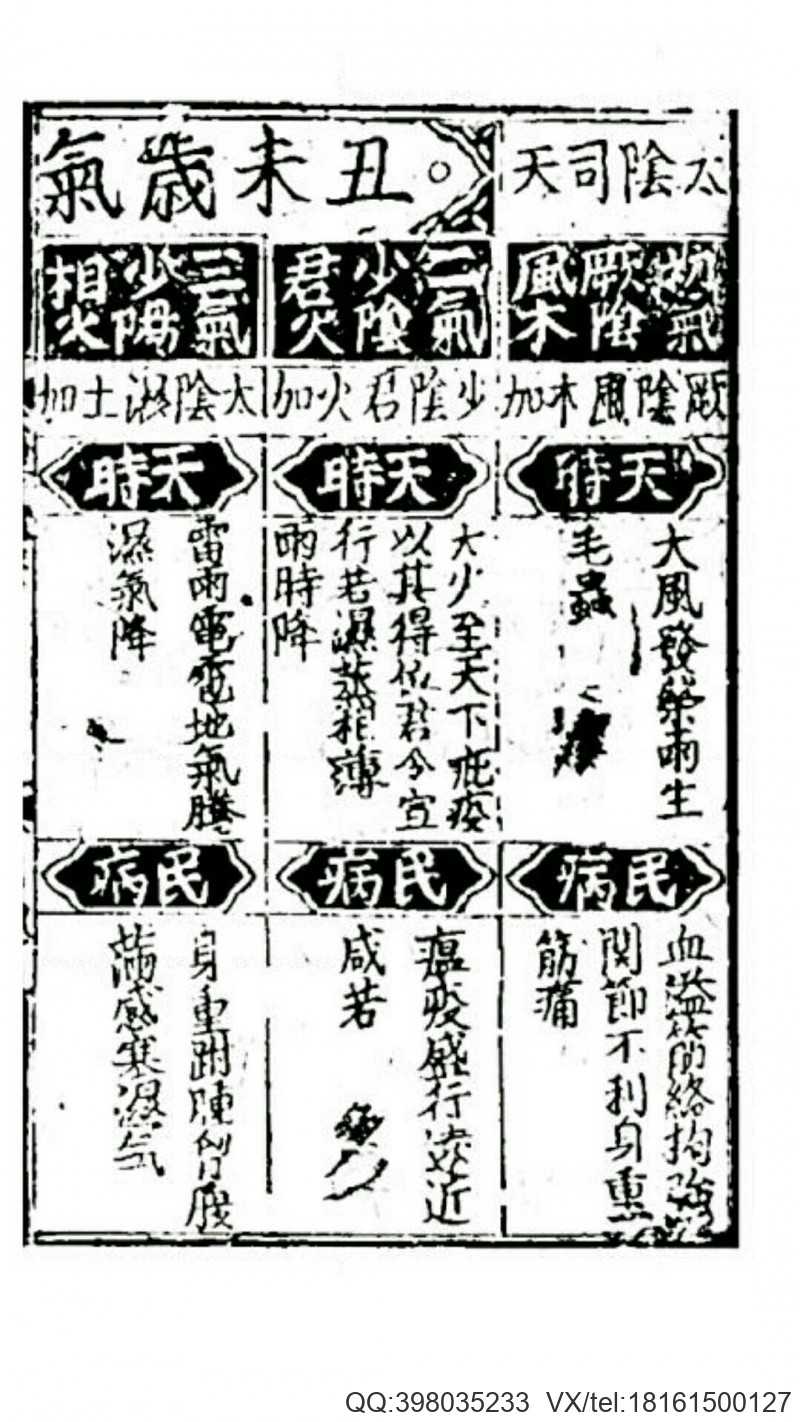 太陰司天
丑未歲氣
初氣
厥陰
風木
厥陰風木加
天時
大風發榮雨生
毛蟲
民病
血溢筋絡拘強
関節不利身重
筋痛
二氣
少陰
君火
少陰君火加
天時
大火至天下疵疫
以其得位君令宣
行若濕蒸相薄
雨時降
民病
瘟疫盛行遠近
咸若
三氣
少陽
相火
太陰濕土加
天時
雷雨電雹地氣騰
濕氣降
民病
身重跗腫胷腹
滿感寒濕气
QQ:398035233 VX/tel:18161500127